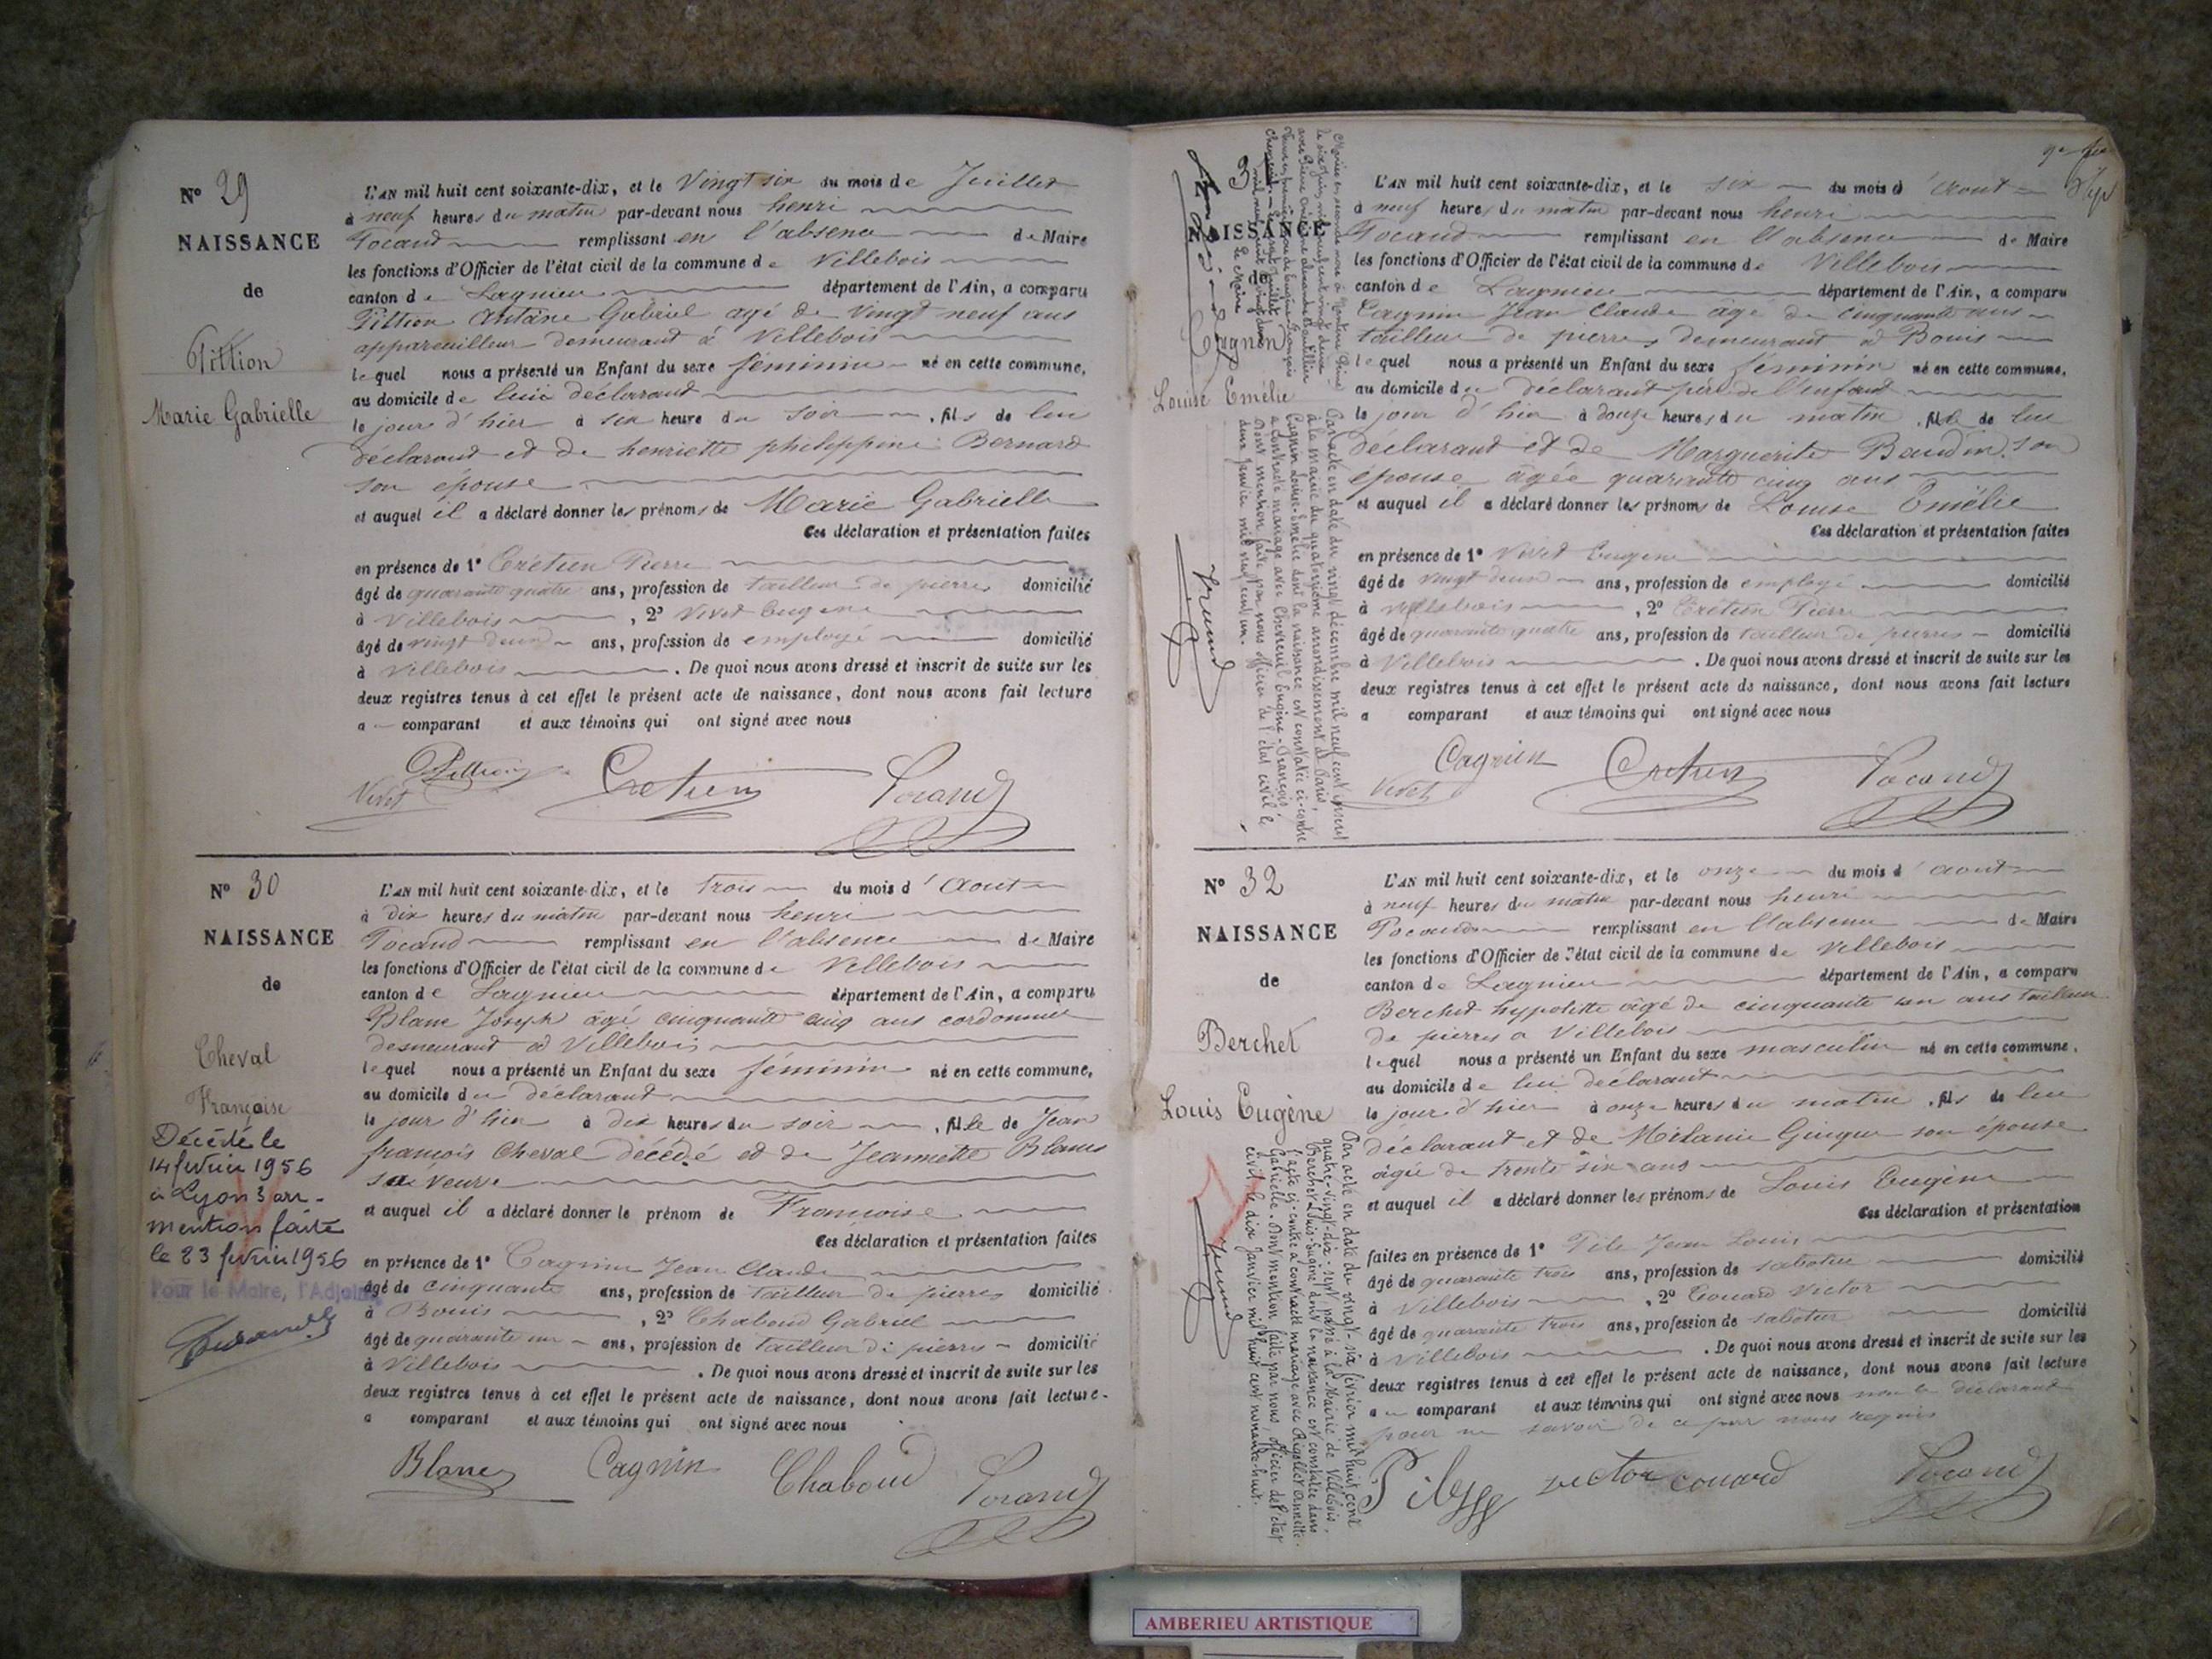 N° 29
NAISSANCE
de
Pittion
Marie Gabrielle
L'AN mil huit cent soixante-dix, et le Vingt six du mois de Juillet
à neuf heures du matin par-devant nous henri
Pocand remplissant en l'absence de Maire
les fonctions d'Officier de l'état civil de la commune de Villebois
canton de Lagnieu département de l'Ain, a comparu
Pittion Antoine Gabriel agé de Vingt neuf ans
appareilleur demeurant à Villebois
lequel nous a présenté un Enfant du sexe féminin né en cette commune,
au domicile de lui déclarant
le jour d'hier à six heure du soir, fils de lui
déclarant et de henriette philippine Bernard
son épouse
et auquel il a déclaré donner les prénoms de Marie Gabrielle
Ces déclaration et présentation faites
en présence de 1° Crétien Pierre
âgé de quarante quatre ans, profession de tailleur de pierres domicilié
à Villebois, 2° Vivet Eugene
âgé de vingt deux ans, profession de employé domicilié
à Villebois. De quoi nous avons dressé et inscrit de suite sur les
deux registres tenus à cet effet le présent acte de naissance, dont nous avons fait lecture
a comparant et aux témoins qui ont signé avec nous
Pittion
Vivet Cretien Pocand
N° 30
NAISSANCE
de
Cheval
Françoise
Décédé le
14 février 1956
à Lyon 3 arr-
mention faite
le 23 février 1956
Pour le Maire, l'Adjoint
L'AN mil huit cent soixante-dix, et le trois du mois d'Aout
à dix heures du matin par-devant nous henri
Pocand remplissant en l'absence de Maire
les fonctions d'Officier de l'état civil de la commune de Villebois
canton de Lagnieu département de l'Ain, a comparu
Blanc Joseph âgé cinquante cinq ans cordonnier
demeurant à Villebois
lequel nous a présenté un Enfant du sexe féminin né en cette commune,
au domicile du déclarant
le jour d'hier à dix heures du soir, fille de Jean
françois Cheval décédé et de Jeannette Blanc
sa veuve
et auquel il a déclaré donner le prénom de Françoise
Ces déclaration et présentation faites
en présence de 1° Cagnin Jean Claude
âgé de cinquante ans, profession de tailleur de pierres domicilié
à Bouis, 2° Chaboud Gabriel
âgé de quarante un ans, profession de tailleur de pierres domicilié
à Villebois. De quoi nous avons dressé et inscrit de suite sur les
deux registres tenus à cet effet le présent acte de naissance, dont nous avons fait lecture
a comparant et aux témoins qui ont signé avec nous
Blanc Cagnin Chaboud Pocand
N° 31
NAISSANCE
de
Cagnin
Louise Emélie
Par acte en date du vingt décembre mil neuf cent inscrit
à la mairie du quatorzième arrondissement de Paris,
Cagnin Louise-Emélie dont la naissance est constatée ci-contre
a contracté mariage avec Chevreuil Eugène-François.
Dont mention faite par nous officier de l'état civil le
deux Janvier mil neuf cent un.
L'AN mil huit cent soixante-dix, et le six du mois d'Aout
à neuf heures du matin par-devant nous henri
Pocand remplissant en l'absence de Maire
les fonctions d'Officier de l'état civil de la commune de Villebois
canton de Lagnieu département de l'Ain, a comparu
Cagnin Jean Claude âgé de cinquante ans
tailleur de pierres demeurant à Bouis
lequel nous a présenté un Enfant du sexe féminin né en cette commune,
au domicile du déclarant père de l'enfant
le jour d'hier à douze heures du matin, fille de lui
déclarant et de Marguerite Baudin son
épouse âgée quarante cinq ans
et auquel il a déclaré donner les prénoms de Louise Emélie
Ces déclaration et présentation faites
en présence de 1° Vivet Eugene
âgé de vingt deux ans, profession de employé domicilié
à Villebois, 2° Crétien Pierre
âgé de quarante quatre ans, profession de tailleur de pierres domicilié
à Villebois. De quoi nous avons dressé et inscrit de suite sur les
deux registres tenus à cet effet le présent acte de naissance, dont nous avons fait lecture
a comparant et aux témoins qui ont signé avec nous
Cagnin Cretien Pocand
Vivet
N° 32
NAISSANCE
de
Berchet
Louis Eugène
Par acte en date du vingt-six février mil huit cent
quatre-vingt-dix-sept passé à la Mairie de Villebois,
Berchet Louis-Eugène dont la naissance est constatée dans
l'acte ci-contre a contracté mariage avec Rigollet Annette-
Gabrielle. Dont mention faite par nous, officier de l'état
civil le dix Janvier mil huit cent nonante-huit.
L'AN mil huit cent soixante-dix, et le onze du mois d'aout
à neuf heures du matin par-devant nous henri
Pocand remplissant en l'absence de Maire
les fonctions d'Officier de l'état civil de la commune de Villebois
canton de Lagnieu département de l'Ain, a comparu
Berchet hypolitte âgé de cinquante un ans tailleur
de pierres a Villebois
lequel nous a présenté un Enfant du sexe masculin né en cette commune,
au domicile de lui déclarant
le jour d'hier à onze heures du matin, fils de lui
déclarant et de Mélanie Ginguer son épouse
âgée de trente six ans
et auquel il a déclaré donner les prénoms de Louis Eugène
Ces déclaration et présentation
faites en présence de 1° Pile Jean Louis
âgé de quarante trois ans, profession de sabotier domicilié
à Villebois, 2° Couard Victor
âgé de quarante trois ans, profession de sabotier domicilié
à Villebois. De quoi nous avons dressé et inscrit de suite sur les
deux registres tenus à cet effet le présent acte de naissance, dont nous avons fait lecture
a comparant et aux témoins qui ont signé avec nous non le déclarant
pour ne savoir de ce par nous requis
victor couard Pocand
AMBERIEU ARTISTIQUE